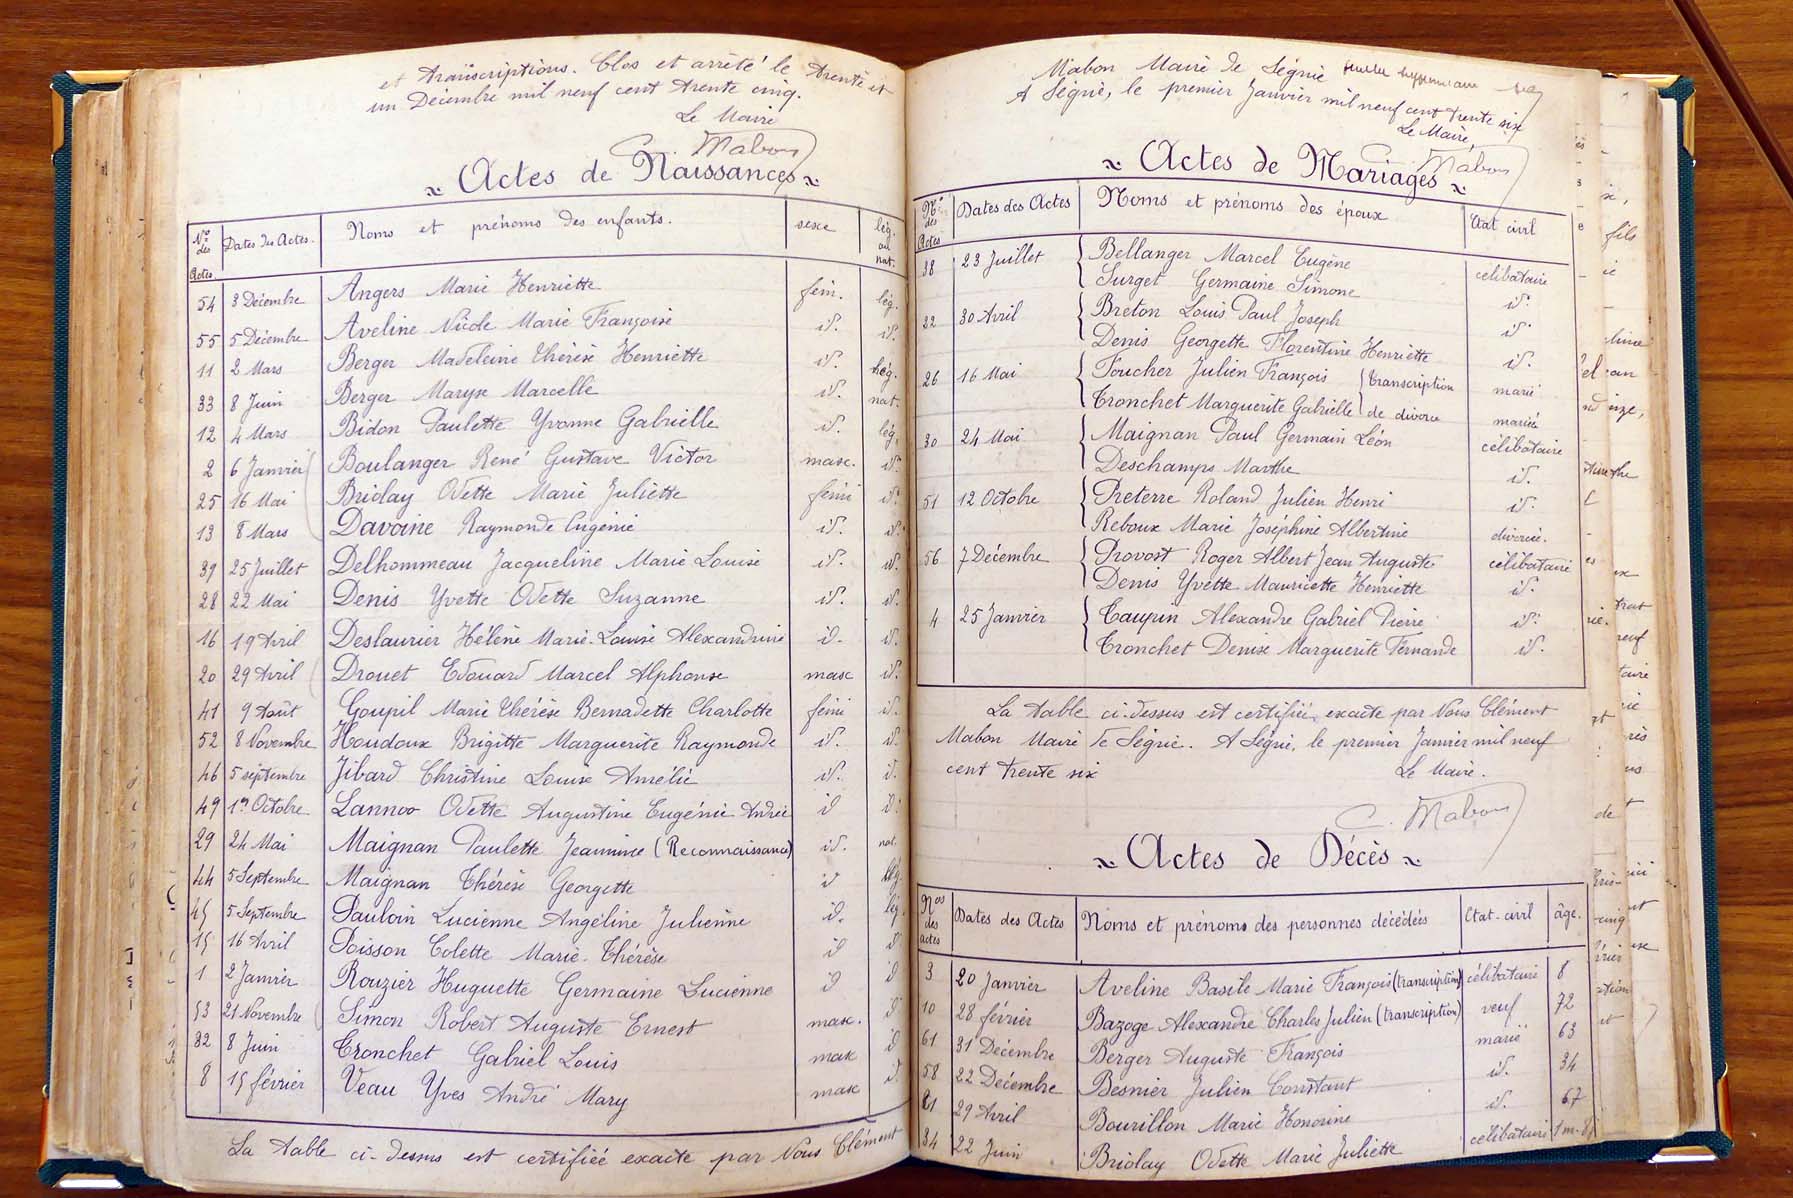 et transcriptions. Clos et arrêté le trente et
un Décembre mil neuf cent trente cinq.
Le Maire
C. Mabon
Actes de Naissances
Nos des Actes Dates des Actes. Noms et prénoms des enfants. sexe lég. ou nat.
54 3 Décembre Angers Marie Henriette fém. lég.
55 5 Décembre Aveline Nicole Marie Françoise id. id.
11 2 Mars Berger Madeleine Thérèse Henriette id. lég.
33 8 Juin Berger Maryse Marcelle id. nat.
12 4 Mars Bidon Paulette Yvonne Gabrielle id. lég.
2 6 Janvier Boulanger René Gustave Victor masc. id.
25 16 Mai Briolay Odette Marie Juliette fémi id.
13 8 Mars Davoine Raymonde Eugénie id. id.
39 25 Juillet Delhommeau Jacqueline Marie Louise id. id.
28 22 Mai Denis Yvette Odette Suzanne id. id.
16 19 Avril Deslaurier Hélène Marie-Louise Alexandrine id. id.
20 29 Avril Drouet Edouard Marcel Alphonse masc id.
41 9 Août Goupil Marie Thérèse Bernadette Charlotte fémi id.
52 8 Novembre Houdoux Brigitte Marguerite Raymonde id. id.
46 5 septembre Jibard Christine Louise Amélie id. id.
49 1er Octobre Lannoo Odette Augustine Eugénie Andrée id id.
29 24 Mai Maignan Paulette Jeannine (Reconnaissance) id. nat.
44 5 Septembre Maignan Thérèse Georgette id lég.
45 5 Septembre Pauloin Lucienne Angéline Julienne id. lég.
15 16 Avril Poisson Colette Marie-Thérèse id id
1 2 Janvier Rouzier Huguette Germaine Lucienne id id
53 21 Novembre Simon Robert Auguste Ernest masc. id
32 8 Juin Tronchet Gabriel Louis masc id
8 15 février Veau Yves André Mary masc id.
La table ci-dessus est certifiée exacte par Nous Clément
Mabon Maire de Ségrie
A Ségrie, le premier Janvier mil neuf cent trente six
Le Maire,
C. Mabon
Actes de Mariages
Nos des Actes Dates des Actes Noms et prénoms des époux Etat civil
38 23 Juillet Bellanger Marcel Eugène célibataire
Surget Germaine Simone id.
22 30 Avril Breton Louis Paul Joseph id.
Denis Georgette Florentine Henriette id.
26 16 Mai Foucher Julien François (transcription marié
Tronchet Marguerite Gabrielle de divorce mariée
30 24 Mai Maignan Paul Germain Léon célibataire
Deschamps Marthe id.
51 12 Octobre Preterre Roland Julien Henri id.
Reboux Marie Joséphine Albertine divorcée.
56 7 Décembre Provost Roger Albert Jean Auguste célibataire
Denis Yvette Mauricette Henriette id.
4 25 Janvier Taupin Alexandre Gabriel Pierre id.
Tronchet Denise Marguerite Fernande id.
La table ci-dessus est certifiée exacte par Nous Clément
Mabon Maire de Ségrie. A Ségrie, le premier Janvier mil neuf
cent trente six Le Maire.
C. Mabon
Actes de Décès
Nos des actes Dates des Actes Noms et prénoms des personnes décédées Etat-civil âge.
3 20 Janvier Aveline Basile Marie François (transcription) célibataire 8
10 28 février Bazoge Alexandre Charles Julien (transcription) veuf 72
61 31 Décembre Berger Auguste François marié 63
58 22 Décembre Besnier Julien Constant id. 34
21 29 Avril Bourillon Marie Honorine id. 67
34 22 Juin Briolay Odette Marie Juliette célibataire 1 m.